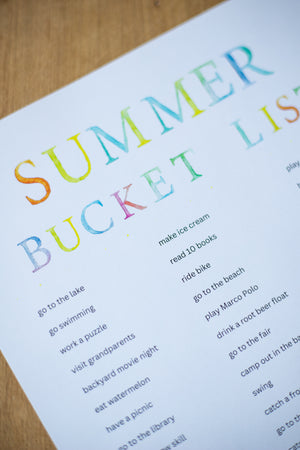 SUMMER
BUCKET LIS
go to the lake
go swimming
work a puzzle
visit grandparents
backyard movie night
eat watermelon
have a picnic
go to the library
skill
make ice cream
read 10 books
ride bike
go to the beach
play Marco Polo
drink a root beer float
go to the fair
camp out in the
swing
catch a
go to
play